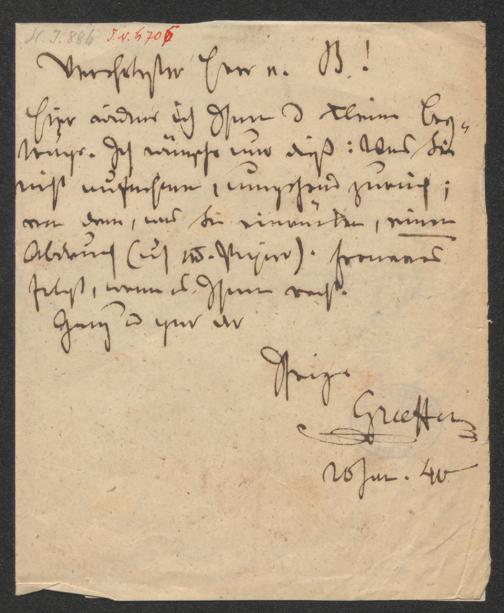 N. I. 884 I.N. 6706
Verehrtester Herr v. B.!
Hier ordne ich Ihnen 3 kleine Bey-
träge. Ich wünsche nur dieß: Was Sie
nicht aufnehmen, umgehend zurück;
von dem, was Sie einrücken, einen
Abdruck (ich). Honorar
folgt, wenn es Ihnen recht.
Ganz u gar der
Ihrige
Graeffer
20 Jan. 40